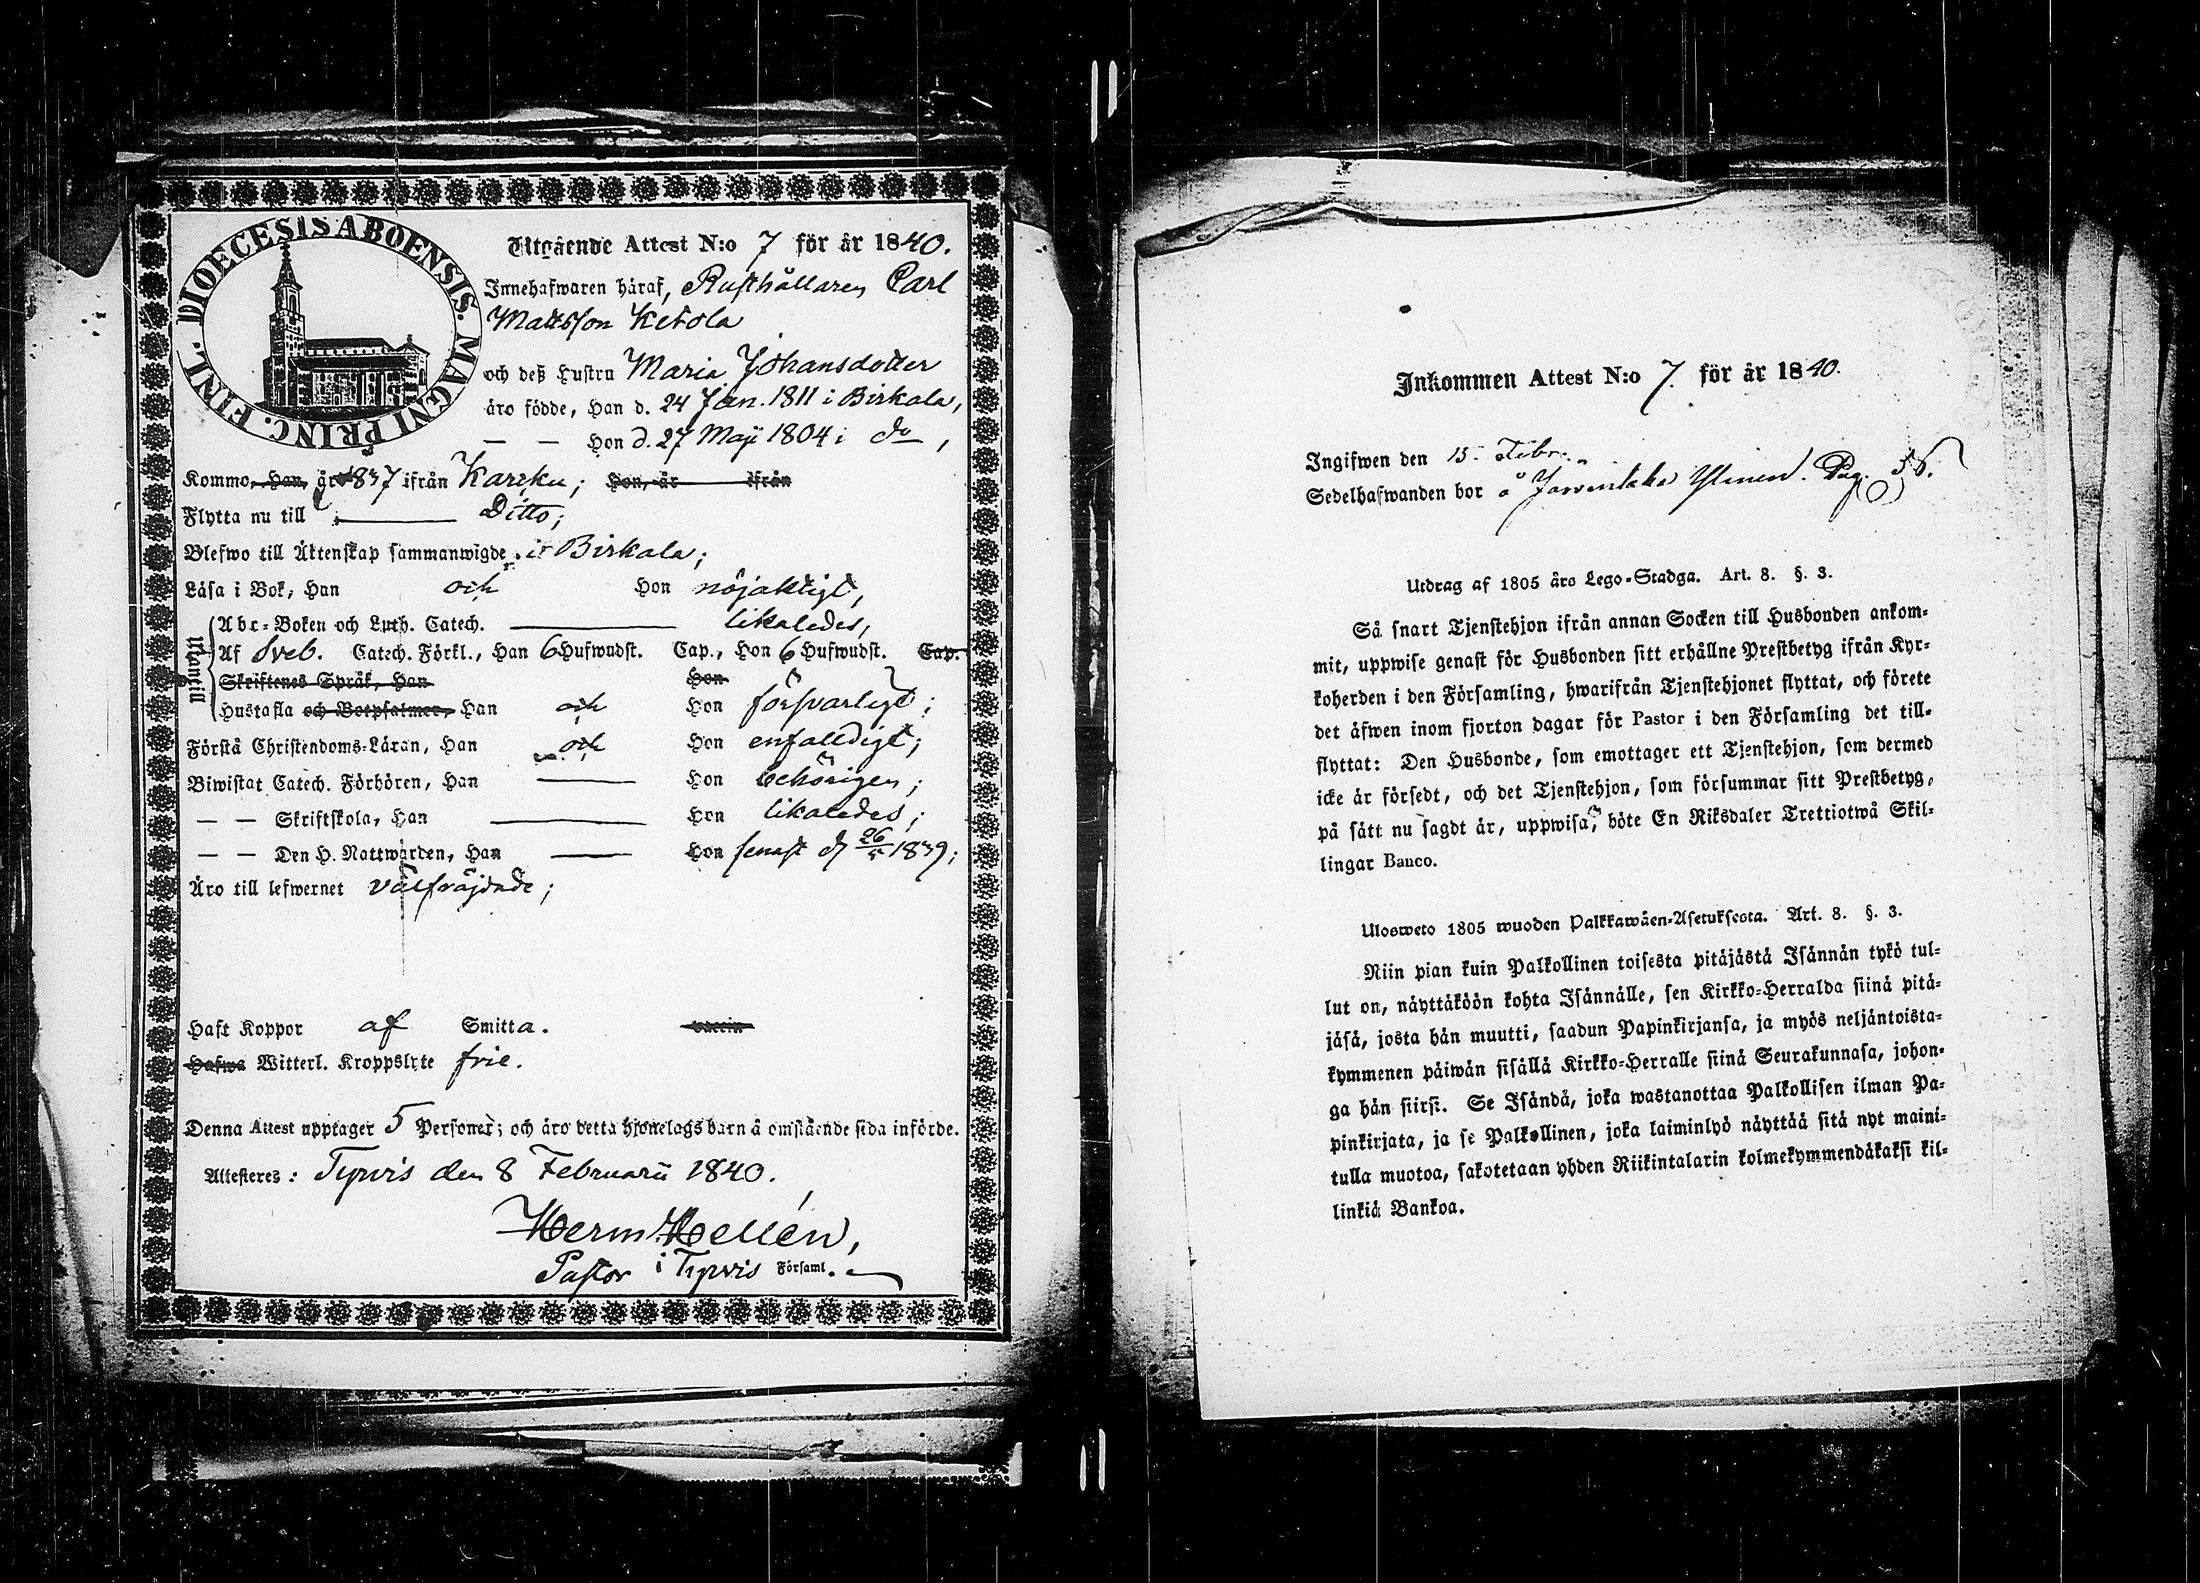 DIOECESIS ABOENSIS. MAGNI PRINC. FINL.
Utgående Attest N:o 7 för år 1840.
Innehafwaren häraf, Rusthållaren Carl
Mattsson Ketola
och deß Hustru Maria Johansdotter
äro födde, Han d. 24 Jan. 1811 i Birkala,
— — Hon d. 27 Maji 1804 i do,
Kommo, Han, år 1837 ifrån Karkku; Hon, år ifrån
Flytta nu till Ditto;
Blefwo till Äktenskap sammanwigde i Birkala;
Läsa i Bok, Han och Hon nöjaktigt,
Utantill
Abc-Boken och Luth. Catech. likaledes,
Af Sveb. Catech. Förkl., Han 6 Hufwudst. Cap., Hon 6 Hufwudst. Cap.
Skriftenes Språk, Han Hon
Hustafla och Botpsalmer, Han och Hon försvarligt;
Förstå Christendoms-Läran, Han och Hon enfalldigt;
Biwistat Catech. Förhören, Han Hon behörigen;
— — Skriftskola, Han Hon likaledes;
— — Den H. Nattwarden, Han Hon senast d 26/5 1839;
Äro till lefwernet välfräjdade;
Haft Koppor af Smitta. vaccin
Hafwa Witterl. Kroppslyte frie.
Denna Attest upptager 5 Personer; och äro detta hjonelags barn å omstående sida införde.
Attesteres: Tyrvis den 8 Februarii 1840.
Herm. Hellén,
Pastor i Tyrvis Församl.
Inkommen Attest N:o 7. för år 1840.
Ingifwen den 15. Febr.
Sedelhafwanden bor å Jarventaka Ylinen. Pag. 56.
Utdrag af 1805 års Lego-Stadga. Art. 8. §. 3.
Så snart Tjenstehjon ifrån annan Socken till Husbonden ankom-
mit, uppwise genast för Husbonden sitt erhållne Prestbetyg ifrån Kyr-
koherden i den Församling, hwarifrån Tjenstehjonet flyttat, och förete
det äfwen inom fjorton dagar för Pastor i den Församling det till-
flyttat: Den Husbonde, som emottager ett Tjenstehjon, som dermed
icke är försedt, och det Tjenstehjon, som försummar sitt Prestbetyg,
på sätt nu sagdt är, uppwisa, böte En Riksdaler Trettiotwå Skil-
lingar Banco.
Ulosweto 1805 wuoden Palkkawäen-Asetuksesta. Art. 8. §. 3.
Niin pian kuin Palkollinen toisesta pitäjästä Isännän tykö tul-
lut on, näyttäköön kohta Isännälle, sen Kirkko-Herralda siinä pitä-
jäsä, josta hän muutti, saadun Papinkirjansa, ja myös neljäntoista-
kymmenen päiwän sisällä Kirkko-Herralle siinä Seurakunnasa, johon-
ga hän siirsi. Se Isändä, joka wastanottaa Palkollisen ilman Pa-
pinkirjata, ja se Palkollinen, joka laiminlyö näyttää sitä nyt maini-
tulla muotoa, sakotetaan yhden Riikintalarin kolmekymmendäkaksi kil-
linkiä Bankoa.